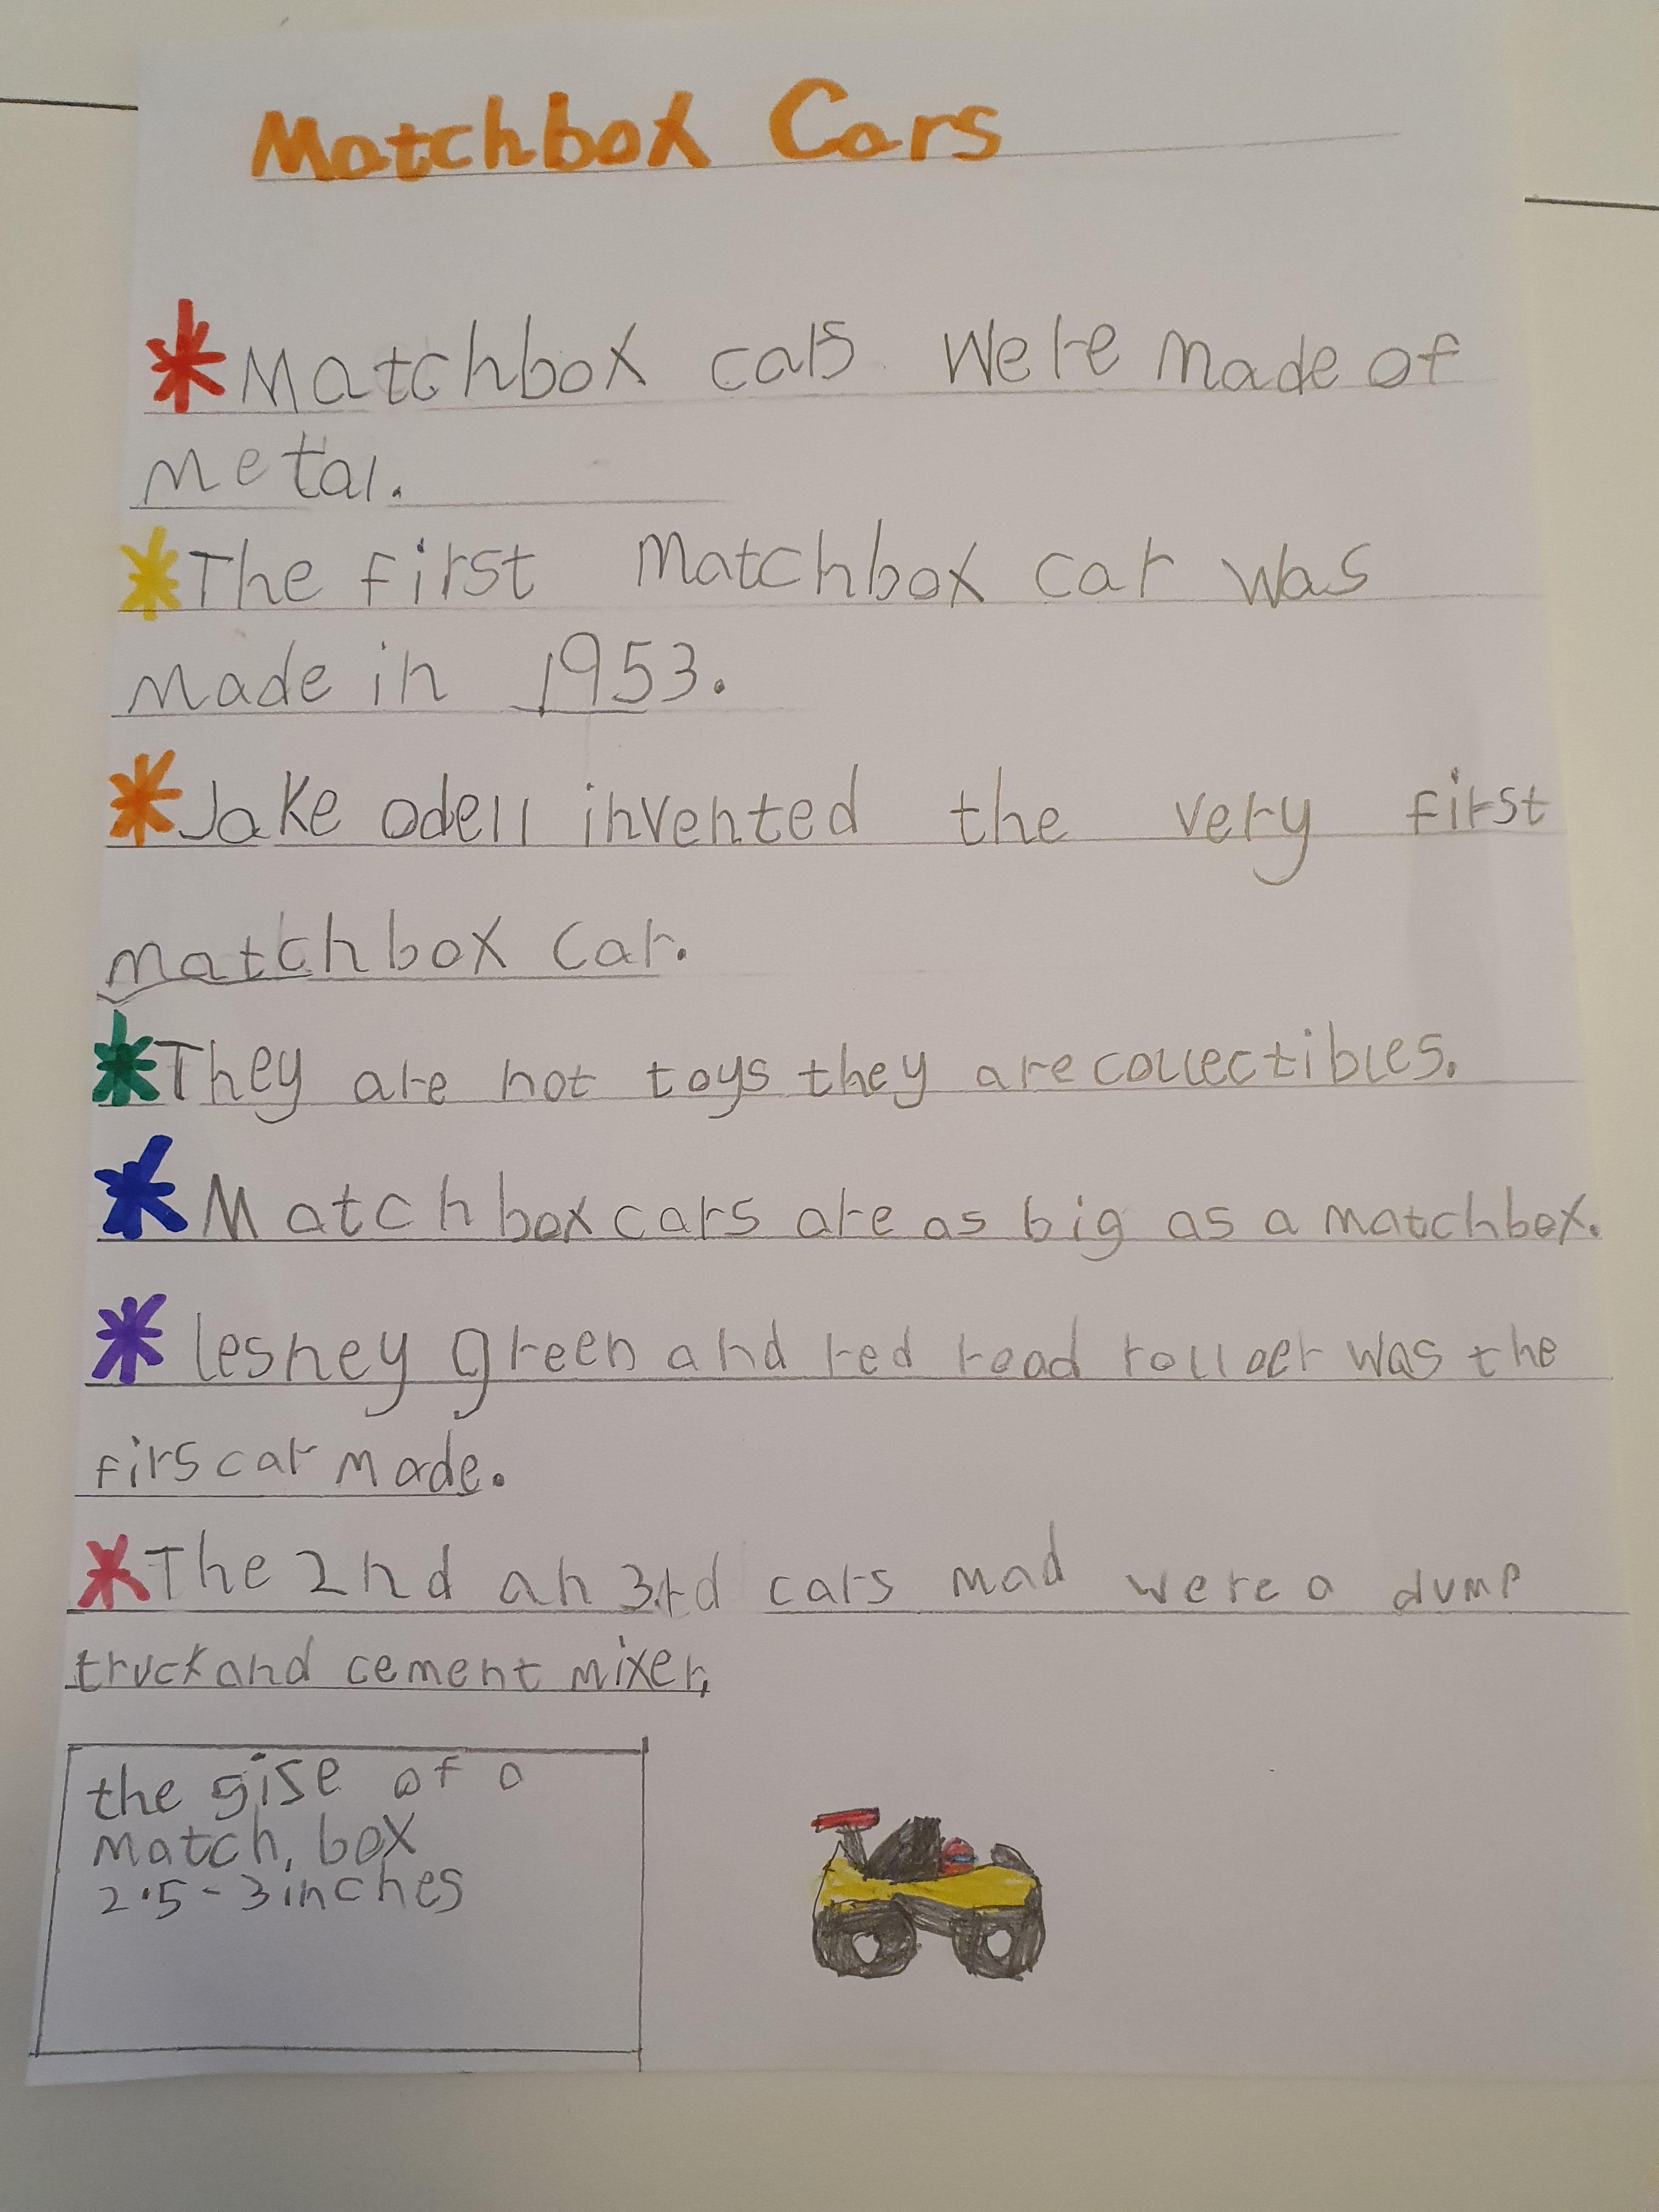 Matchbox Cars
Matchbox cars were made of
metal.
The first Matchbox car was
made in 1953.
Jake odell invented the very first
matchbox car.
They are not toys they are collectibles.
Matchbox cars are as big as a matchbox.
lesney green and red road roller was the
firs car made.
The 2nd an 3rd cars mad were a dump
truck and cement mixer,
the sise of a
match, box
2.5-3 inches